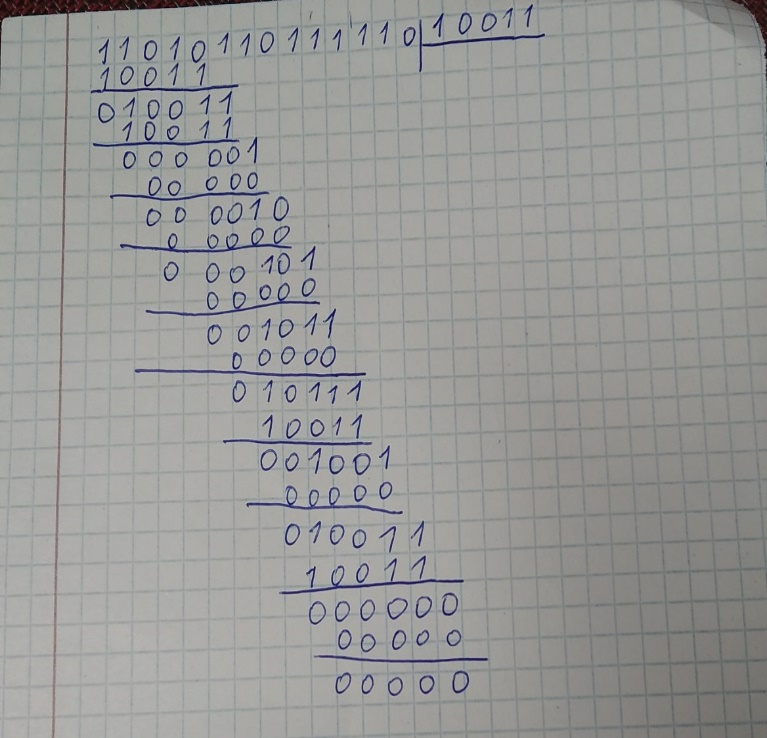 11010110111110 10011
10011
010011
10011
000 001
00 000
00 0010
0 0000
0 00 101
00000
001011
00000
010111
10011
001001
00000
010011
10011
000000
00000
00000